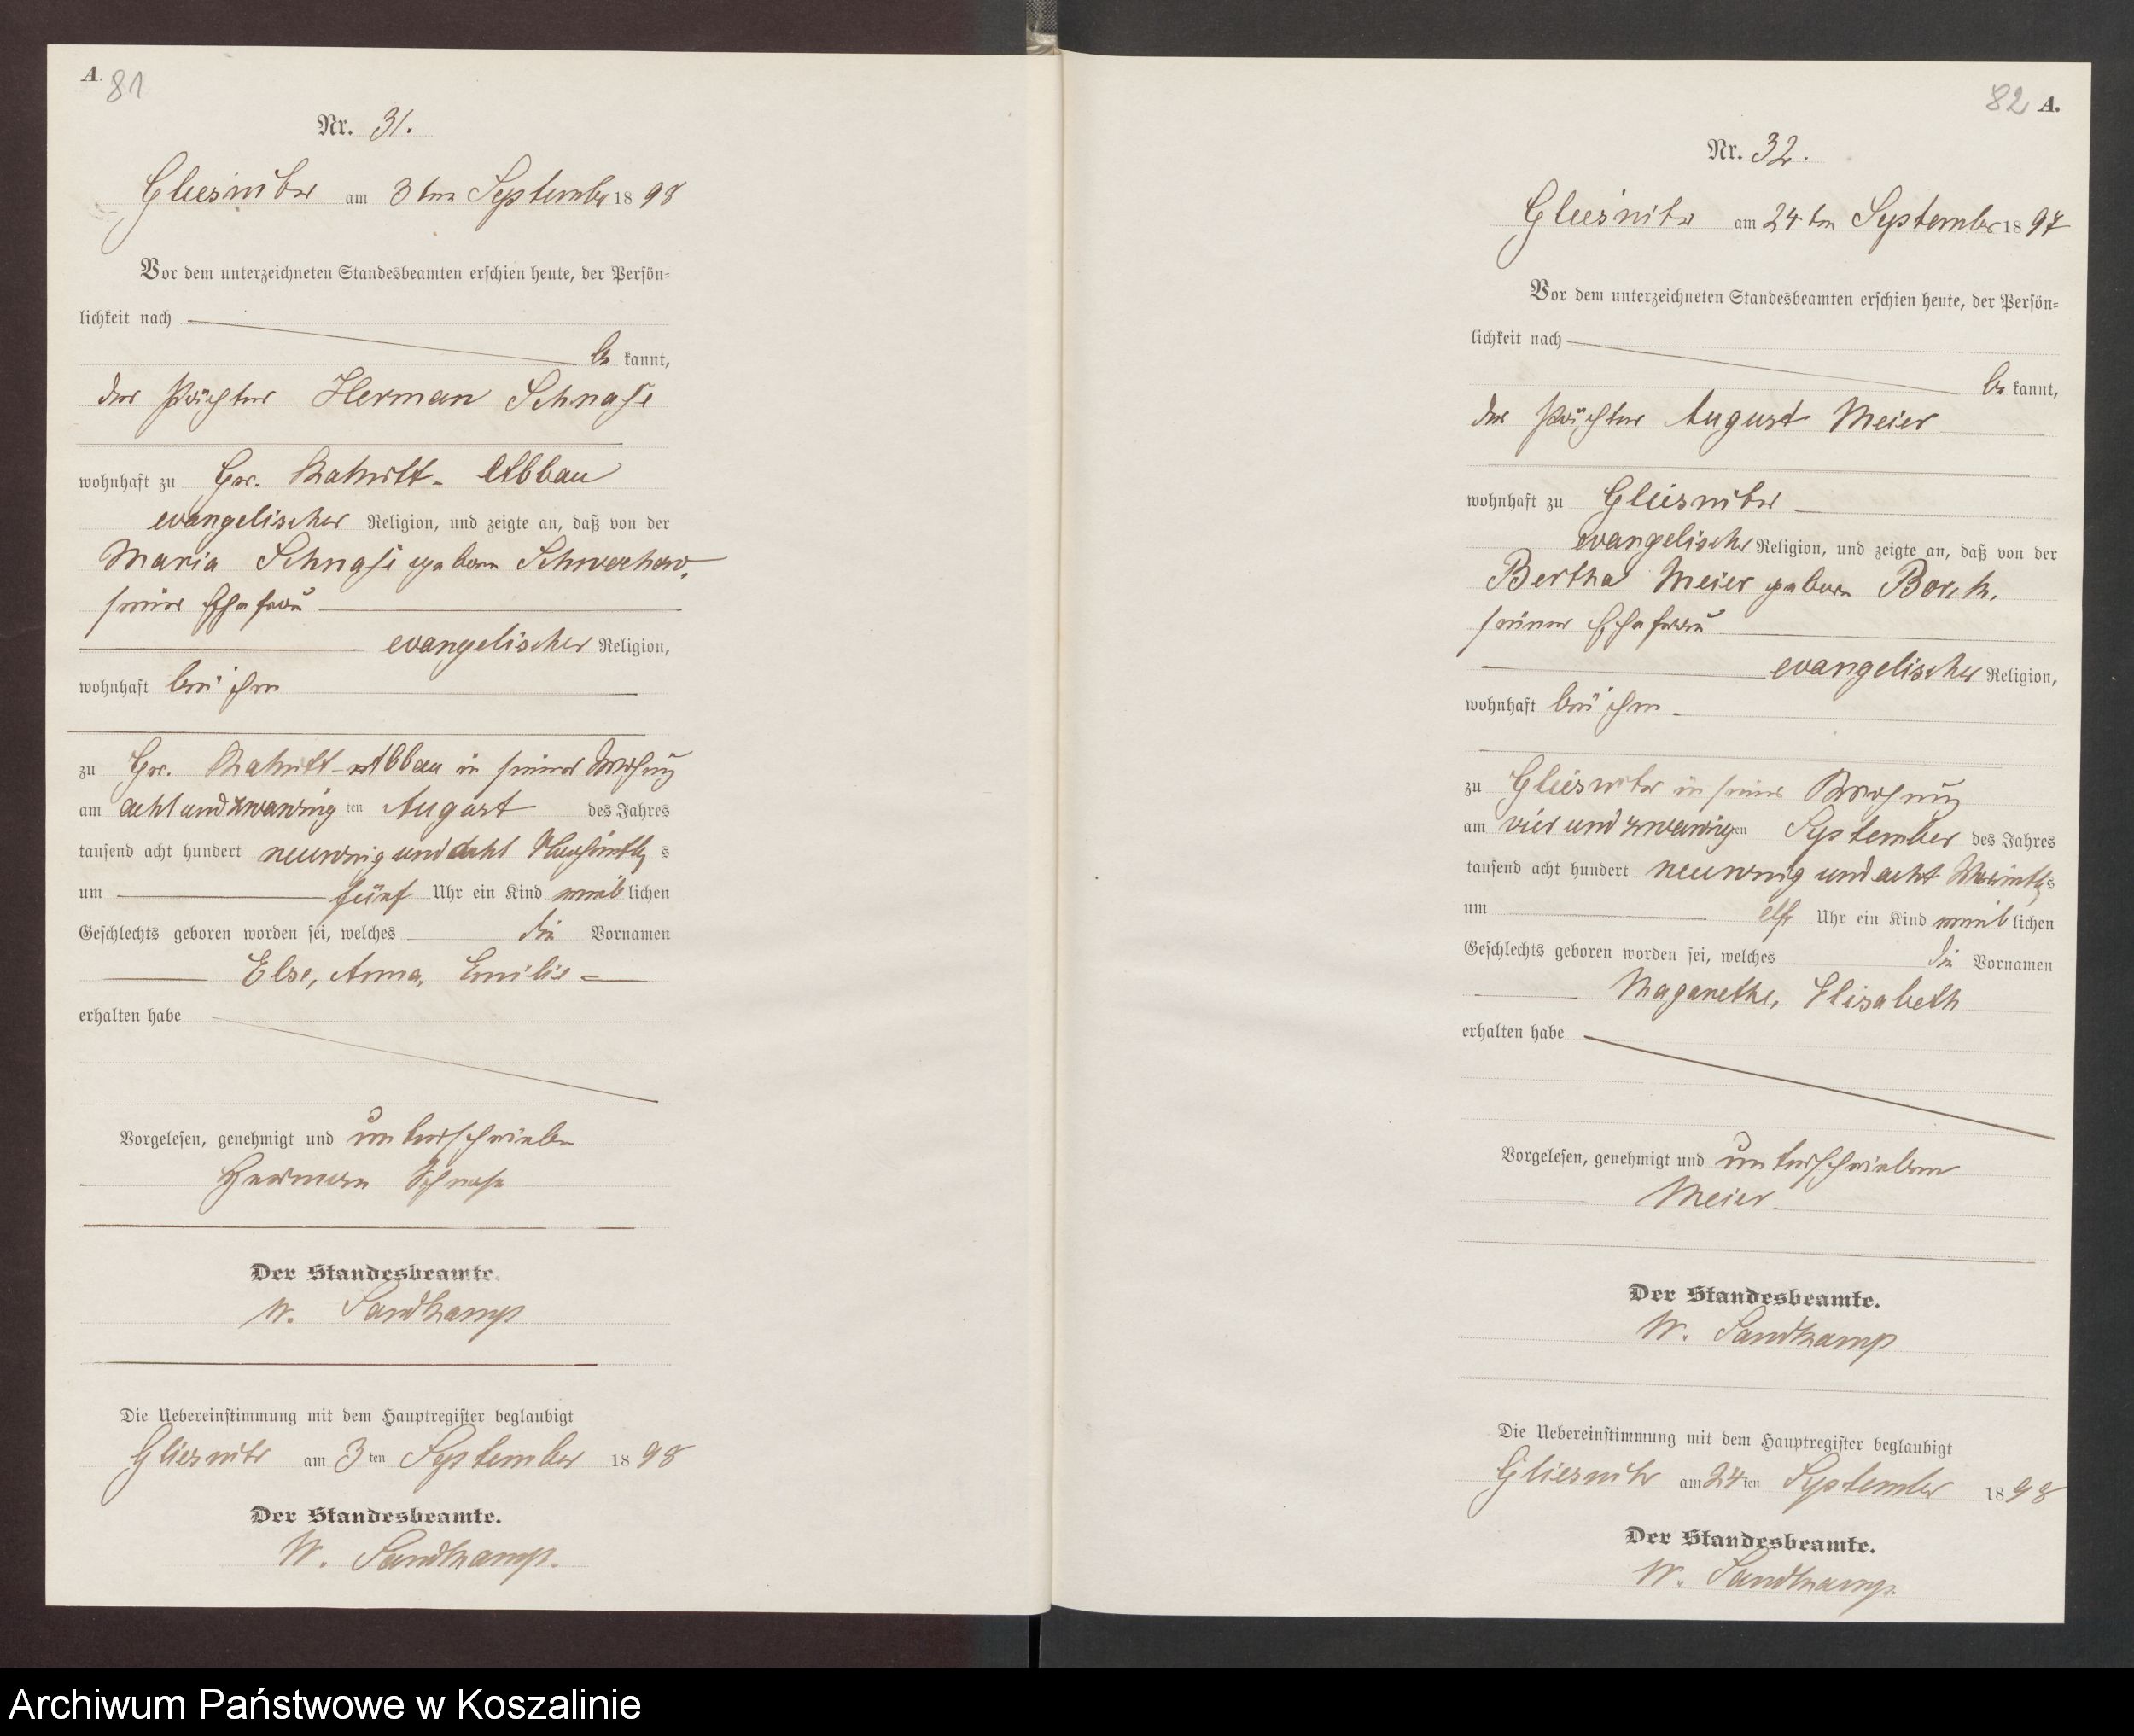 A.
81
Nr. 31.
Gliesnitz am 3ten September 1898
Vor dem unterzeichneten Standesbeamten erschien heute, der Persön-
lichkeit nach
be kannt,
der Pächter Herman Schnase
wohnhaft zu Gr. Abbau
evangelischer Religion, und zeigte an, daß von der
Maria Schnase geboren
seiner Ehefrau
evangelischer Religion,
wohnhaft bei ihm
zu Gr. Abbau in seiner Wohnung
am achtundzwanzig ten August des Jahres
tausend acht hundert neunzig und acht Nachmittag s
um fünf Uhr ein Kind weib lichen
Geschlechts geboren worden sei, welches die Vornamen
Else, Anna, Emilie
erhalten habe
Vorgelesen, genehmigt und unterschrieben
Hermann Schnase
Der Standesbeamte.
W. Sandkamp
Die Uebereinstimmung mit dem Hauptregister beglaubigt
Gliesnitz am 3 ten September 1898
Der Standesbeamte.
W. Sandkamp.
82 A.
Nr. 32.
Gliesnitz am 24ten September 1897
Vor dem unterzeichneten Standesbeamten erschien heute, der Persön-
lichkeit nach
be kannt,
der Pächter August Meier
wohnhaft zu Gliesnitz
evangelischer Religion, und zeigte an, daß von der
Bertha Meier geboren Borck,
seiner Ehefrau
evangelischer Religion,
wohnhaft bei ihm
zu Gliesnitz in seiner Wohnung
am vier und zwanzig ten September des Jahres
tausend acht hundert neunzig und acht Vormittag s
um elf Uhr ein Kind weib lichen
Geschlechts geboren worden sei, welches die Vornamen
Magarethe, Elisabeth
erhalten habe
Vorgelesen, genehmigt und unterschrieben
Meier
Der Standesbeamte.
W. Sandkamp
Die Uebereinstimmung mit dem Hauptregister beglaubigt
Gliesnitz am 24 ten September 1898
Der Standesbeamte.
W. Sandkamp.
Archiwum Państwowe w Koszalinie